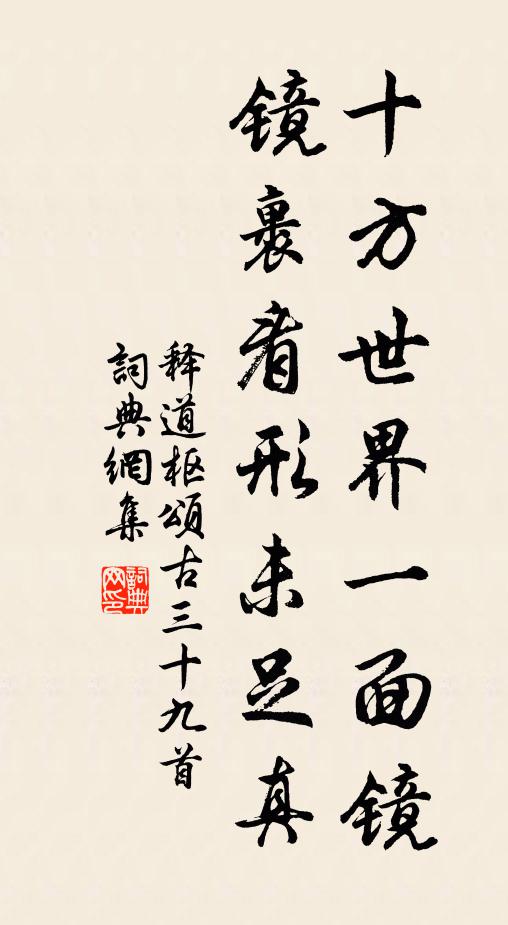 十方世界一面镜
镜裏看形未足真
释道枢頌古三十九首
詞典網集
詞典网印